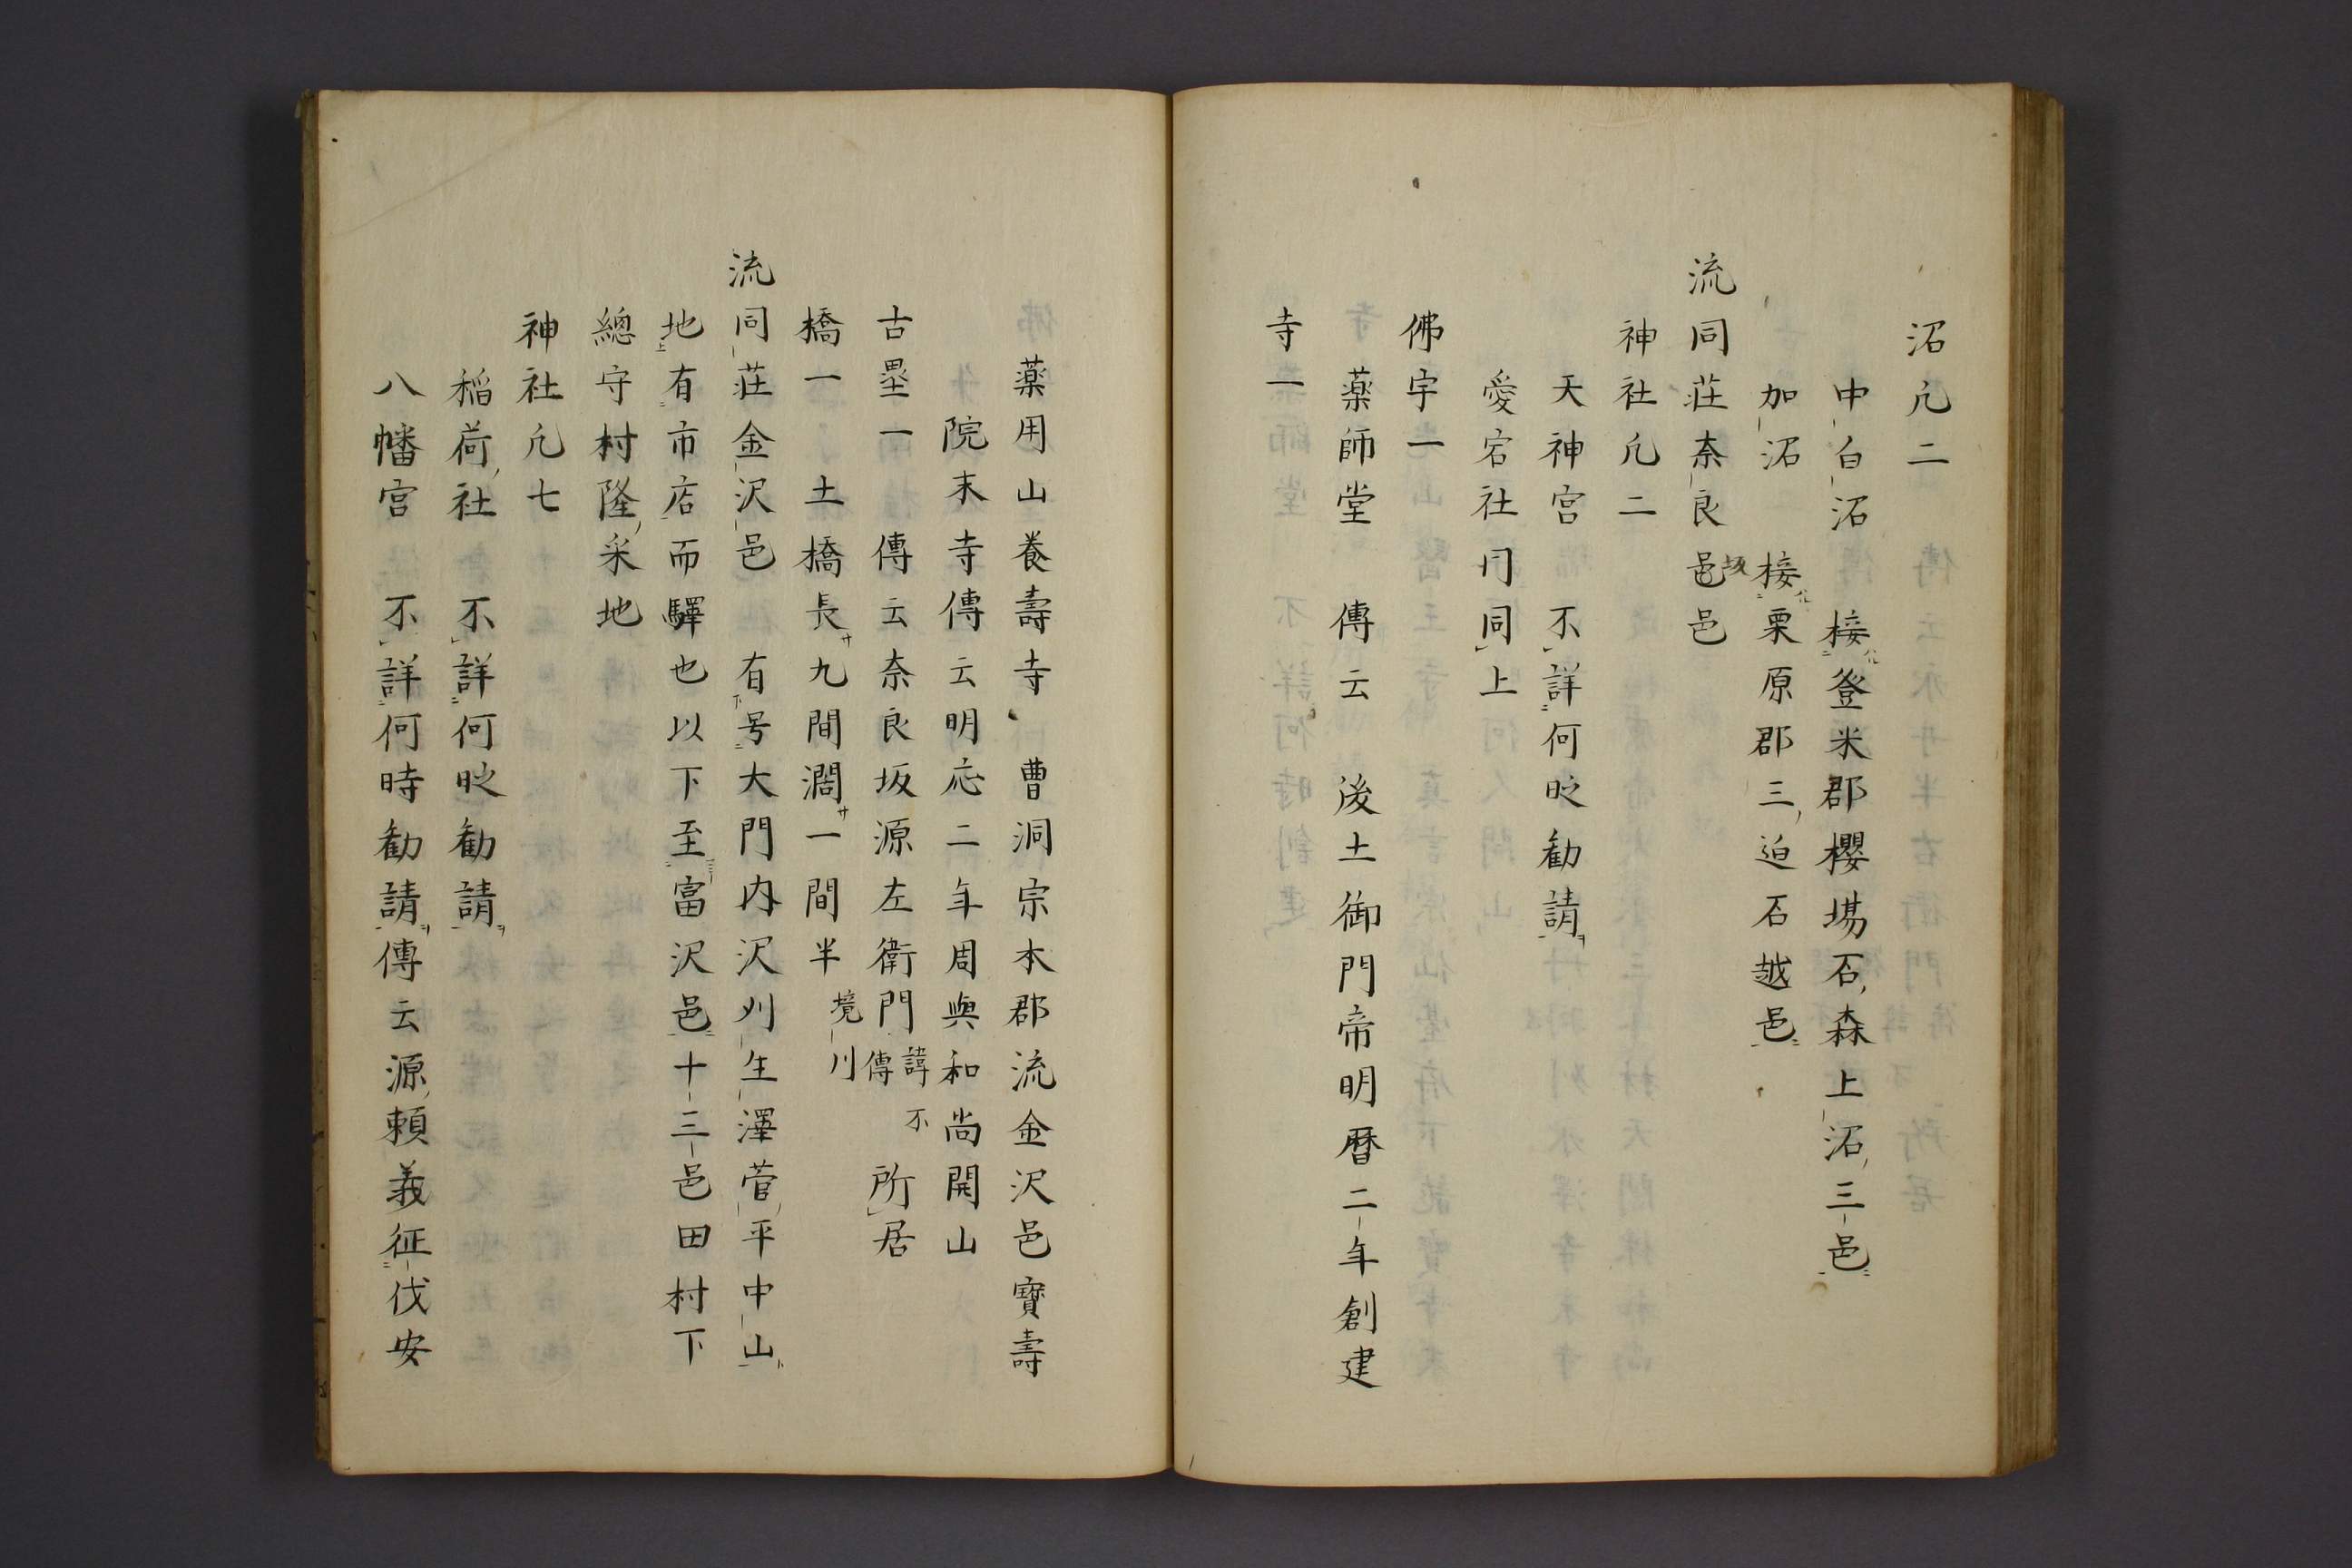 沼凢二
中白沼　接登米郡櫻場石森上沼三邑
加沼　接栗原郡三迫石越邑
流同荘奈良邑坂邑
神社凢二
天神宮　不詳何时勧請
愛宕社　同同上
佛宇一
薬師堂　傳云　後土御門帝明暦二年創建
寺一
薬用山養壽寺　曹洞宗本郡流金沢邑寶壽
院末寺傳云明応二年周與和尚開山
古塁一　傳云奈良坂源左衛門諱不傳所居
橋一　土橋長九間濶一間半境川
流同荘金沢邑　有号大門内沢刈生澤菅平中山
地有市店而驛也以下至富沢邑十三邑田村下
總守村隆采地
神社凢七
稲荷社　不詳何时勧請
八幡宮　不詳何時勧請傳云源頼義征伐安